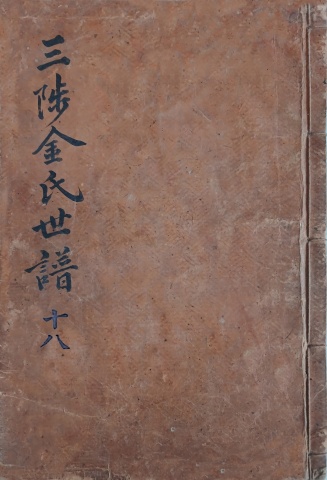 三陟金氏世譜 十八